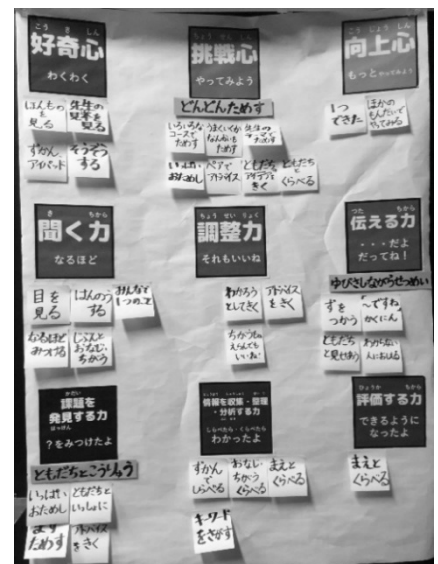 こう き しん
好奇心
わくわく
ほんもの
を
見る
先生の
見本を
見る
ずかん、
アイパッド
そうぞう
する
ちょう せん しん
挑戦心
やってみよう
どんどんためす
いろいろな
コースで
ためす
うまくいくか
なんかいも
ためす
先生の
ためす
いっぱい
おためし
ペアで
アドバイス
ともだち
アイデアを
きく
ともだち
と
くらべる
こう じょう しん
向上心
もっとやってみよう
1つ
できた
ほかの
もんだいで
やってみる
き ちから
聞く力
なるほど
目を
見る
はんのう
する
みんなで
1つのこと
なるほど
みつける
じぶんと
おなじ・
ちがう
ちょう せい りょく
調整力
それもいいね
わかろう
としてきく
アドバイス
をきく
ちがうもの
えらんでも
いいね
つた ちから
伝える力
・・・だよ
だってね!
ゆびさしながらせつめい
ずを
つかう
「~ですね」
かくにん
ともだち
と見せあう
わからない
人におしえる
かだい
課題を
発見する力
はっけん
?をみつけたよ
ともだちとこうりゅう
いっぱい
おためし
ともだちと
いっしょに
まず
ためす
アドバイス
をきく
情報を収集・整理
・分析する力
しらべたら・くらべたら
わかったよ
ずかん
で
しらべる
おなじ・
ちがう
くらべる
まえと
くらべる
キーワード
をさがす
ひょうか ちから
評価する力
できるように
なったよ
まえと
くらべる